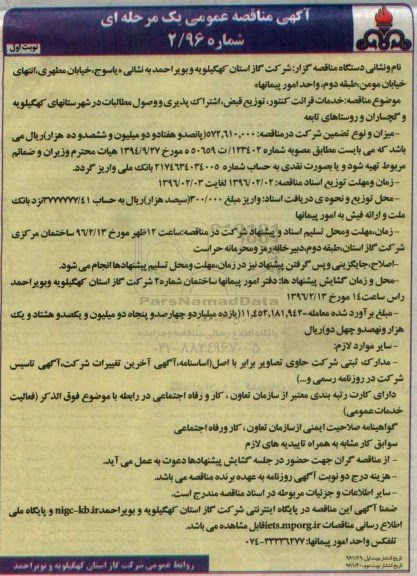 آگهی مناقصه عمومی یک مرحله ای
شماره ۲/۹۶
نوبت اول
نام ونشانی دستگاه مناقصه گزار: شرکت گاز استان کهگیلویه و بویراحمد به نشانی «یاسوج، خیابان مطهری، انتهای
خیابان مومن، طبقه دوم، واحد امور پیمانها»
موضوع مناقصه: خدمات قرائت کنتور، توزیع قبض، اشتراک پذیری و وصول مطالبات در شهرستانهای کهگیلویه
و گچساران و روستاهای تابعه
-میزان و نوع تضمین شرکت در مناقصه: ۵۷۲,۶۱۰,۰۰۰(پانصدو هفتادو دو میلیون و ششصدو ده هزار)ریال می
باشد که می بایست مطابق مصوبه شماره ۱۲۳۴۰۲/ت ۵۰۶۵۹ ه مورخ ۱۳۹۴/۹/۲۷ هیات محترم وزیران و ضمائم
مربوط تهیه شود و یا بصورت نقدی به حساب شماره ۲۱۷۴۶۳۴۰۳۴۰۰۵ بانک ملی واریز گردد.
-زمان ومهلت توزیع اسناد مناقصه: ۱۳۹۶/۰۲/۰۲ لغایت ۱۳۹۶/۰۲/۰۳
-محل توزیع و نحوه ی دریافت اسناد: واریز مبلغ ۳۰۰/۰۰۰(سیصد هزار)ریال به حساب ۳۷۷۷۷۷۷/۴۱نزد بانک
ملت و ارائه فیش به امور پیمانها
-زمان، مهلت ومحل تسلیم اسناد و پیشنهاد شرکت در مناقصه: ساعت ۱۲ظهر مورخ ۹۶/۲/۱۳ ساختمان مرکزی
شرکت گاز استان، طبقه دوم، دبیرخانه رمز ومحرمانه حراست
-اصلاح، جایگزینی و پس گرفتن پیشنهاد نیز در زمان، مهلت ومحل تسلیم پیشنهادها انجام می شود.
-محل و زمان گشایش پیشنهاد ها: دفتر امور پیمانها ساختمان شماره۲ شرکت گاز استان کهگیلویه وبویراحمد
راس ساعت۱۴ مورخ ۱۳۹۶/۲/۱۳
-مبلغ برآورد شده معامله-۱۱,۴۵۲,۱۸۱,۹۴۲(یازده میلیاردو چهارصدو پنجاه دو میلیون و یکصدو هشتاد و یک
هزار ونهصدو چهل دو)ریال
- سایر موارد لازم:
- مدارک ثبتی شرکت حاوی تصاویر برابر با اصل(اساسنامه، آگهی آخرین تغییرات شرکت، آگهی تاسیس
شرکت در روزنامه رسمی و...)
دارای کارت رتبه بندی معتبر از سازمان تعاون ، کار و رفاه اجتماعی در رابطه با موضوع فوق الذکر (فعالیت
خدمات عمومی)
گواهینامه صلاحیت ایمنی ازسازمان تعاون ، کار ورفاه اجتماعی
سوابق کار مشابه به همراه تاییدیه های لازم
- از مناقصه گران جهت حضور در جلسه گشایش پیشنهادها دعوت به عمل می آید.
- هزینه درج دو نوبت آگهی روزنامه به عهده برنده مناقصه می باشد.
-سایر اطلاعات و جزئیات مربوطه در اسناد مناقصه مندرج است.
ضمنا آگهی این مناقصه در پایگاه اینترنتی شرکت گاز استان کهگیلویه و بویراحمدnigc-kb.ir و پایگاه ملی
اطلاع رسانی مناقصات iets.mporg.irقابل مشاهده می باشد.
تلفکس واحد امور پیمانها: ۳۳۳۳۶۲۷۷-۰۷۴
تاریخ انتشار نوبت اول: ۹۶/۱/۲۹
تاریخ انتشار نوبت دوم: ۹۶/۱/۳۰
روابط عمومی شرکت گاز استان کهگیلویه و بویراحمد
ParsNamadData
۰۲۱-۸۸۳۴۹۶۷۰-۵